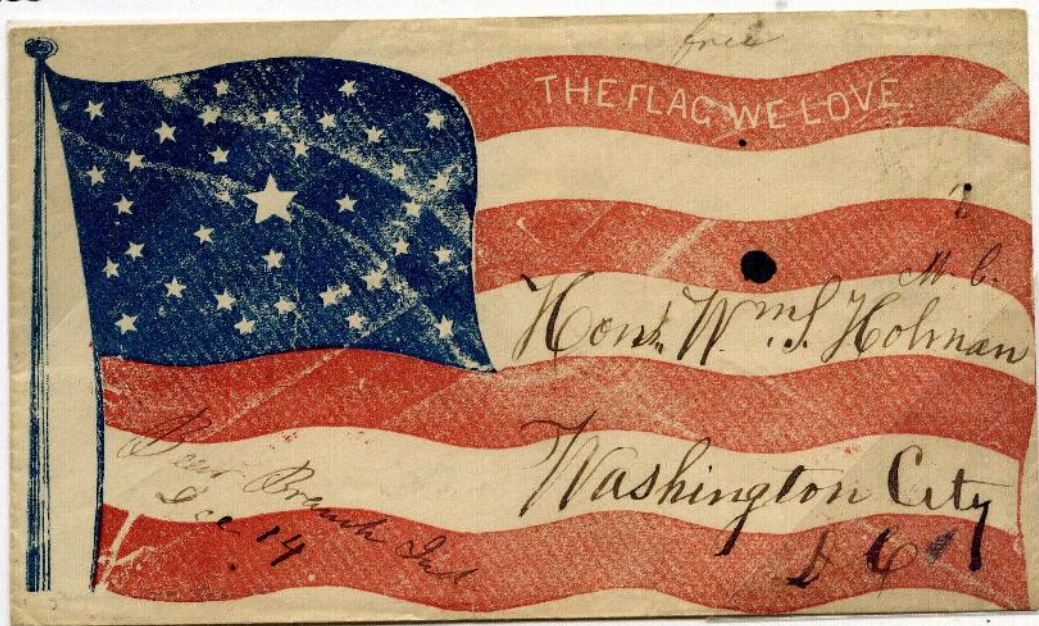 free
THE FLAG WE LOVE.
M. C.
Hon. Wm. S. Holman
Washington City
D C
Bear Branch Ind
Dec 14